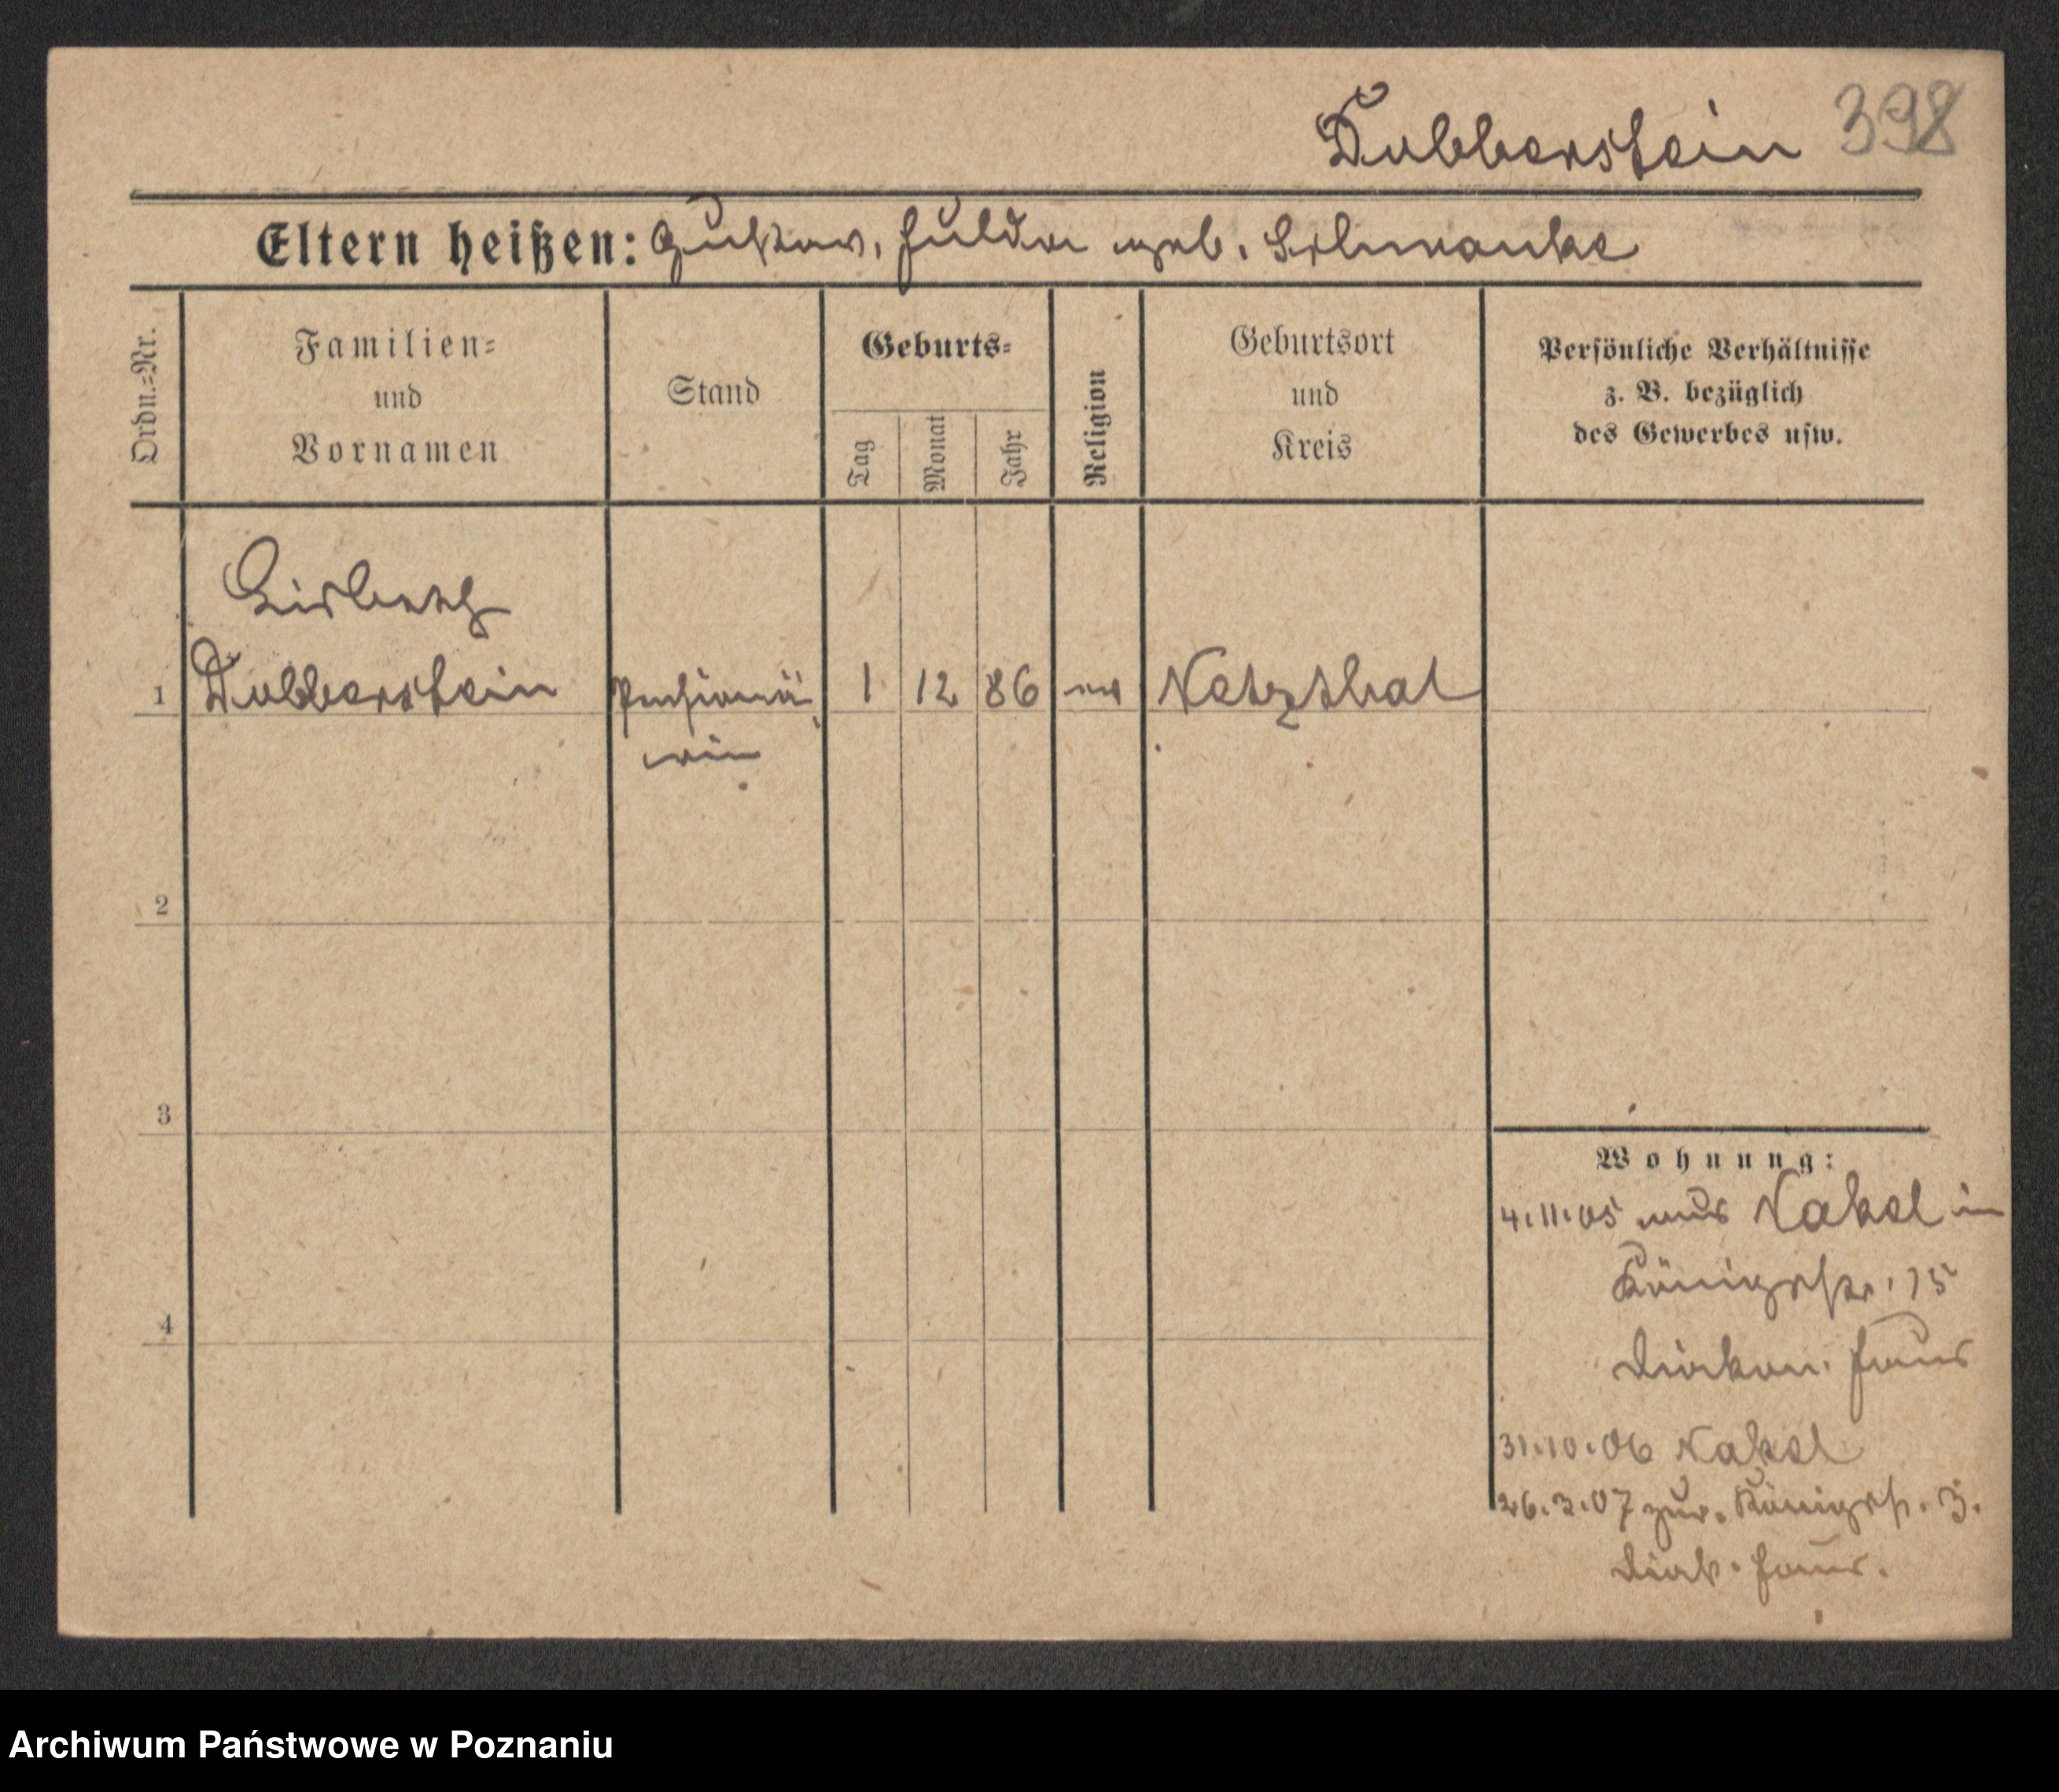 Dubberstein 398
Eltern heißen: Gustav, Hulda geb. Schmanke
Ordn.=Nr.
Familien=
und
Vornamen
Stand
Geburts=
Tag
Monat
Jahr
Religion
Geburtsort
und
Kreis
Persönliche Verhältnisse
z. B. bezüglich
des Gewerbes usw.
1 Dubberstein Pensionä 1 12 86 ev Netzthal
rin
2
3
4
Wohnung:
4.11.05 aus Nakel in
Königstr. 15
Diakon. Haus
31.10.06 Nakel
26.3.07 zur. Königstr. 3.
Diak. Haus.
Archiwum Państwowe w Poznaniu